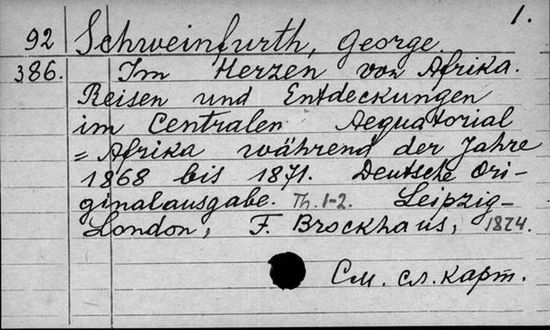 1.
92 Schweinfurth, George.
386. Im Herzen von Afrika.
Reisen und Entdeckungen
im Centralen Aequatorial
= Afrika während der Jahre
1868 bis 1871. Deutsche Ori-
ginalausgabe. Th. 1-2. Leipzig-
London, F. Brockhaus, 1874.
См. сл. карт.